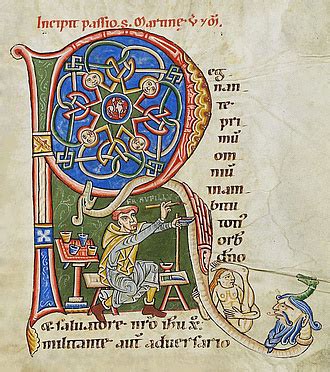 Incipit passio. s. Martine. V
R
eg
nan
te
pri
mū
om
niū
am
bitu
toti
orb
dno
FR RVFILL
& saluatore nro ihu x
militante aut aduersario